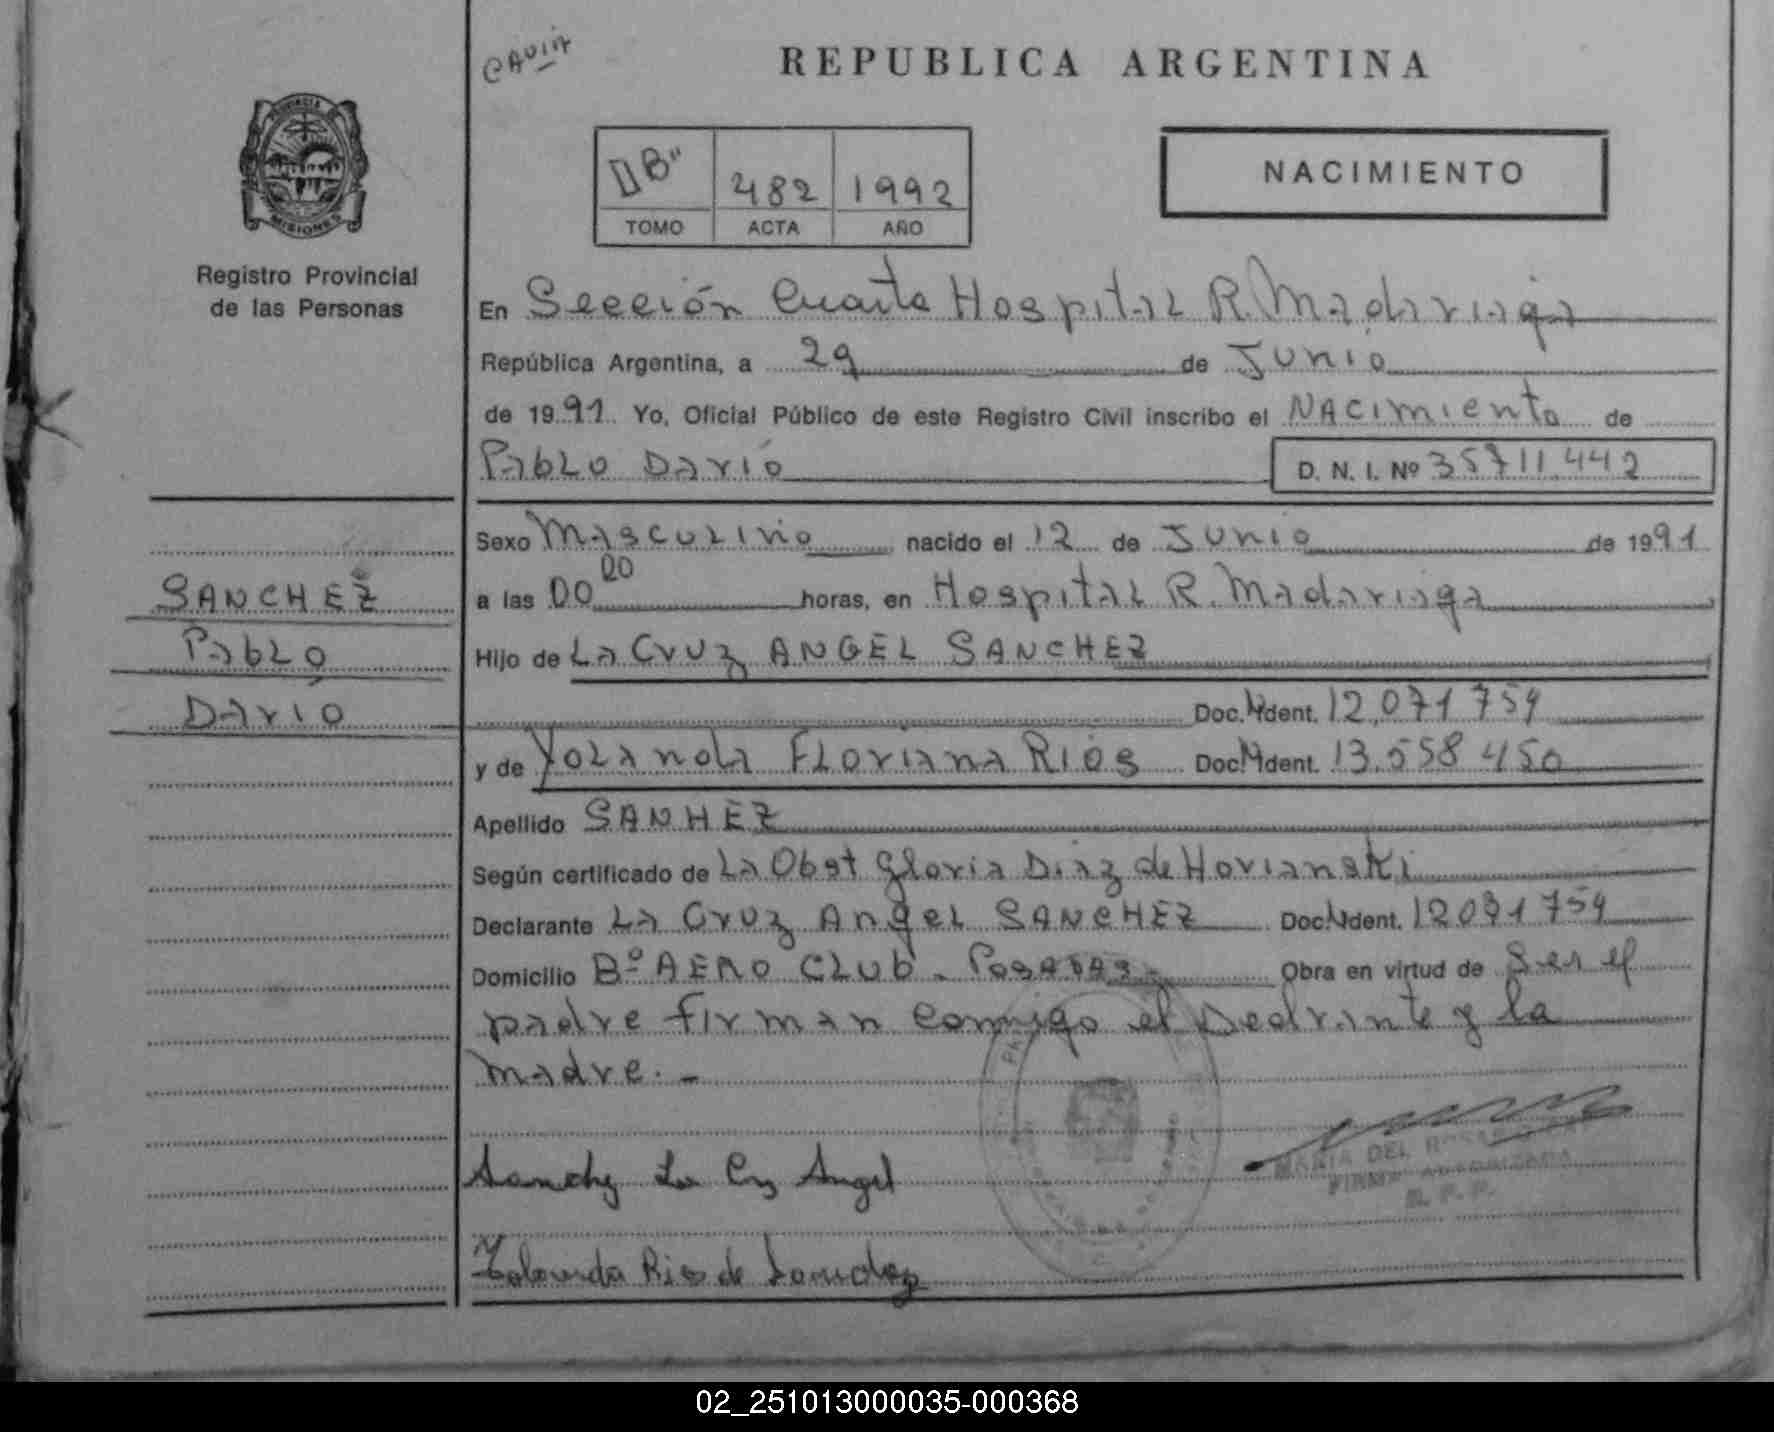 CAVIA
REPUBLICA ARGENTINA
PROVINCIA
MISIONES
Registro Provincial
de las Personas
"B" 482 1992
TOMO ACTA AÑO
NACIMIENTO
En Sección Cuarta Hospital R. Madariaga
República Argentina, a 29 de Junio
de 1991 Yo, Oficial Público de este Registro Civil inscribo el NACimiento de
Pablo Darío D. N. I. Nº 35711442
Sexo Masculino nacido el 12 de Junio de 1991
SANCHEZ
Pablo
Darío
a las 00 horas, en Hospital R. Madariaga
Hijo de La Cruz ANGEL SANCHEZ
Doc. Ident. 12.071 759
y de Yolanda Floriana Rios Doc. Ident. 13.558 450
Apellido SANHEZ
Según certificado de La Obst Gloria Diaz de Horianski
Declarante La Cruz Angel SANCHEZ Doc. Ident. 12071759
Domicilio Bº AERO CLUB - Posadas - Obra en virtud de Ser el
padre firman conmigo el Declrante y la
madre. -
Sanchez La Cruz Angel
MARIA DEL
FIRMA AUTORIZADA
R. P. P.
Yolanda Rios de Sanchez
02_251013000035-000368